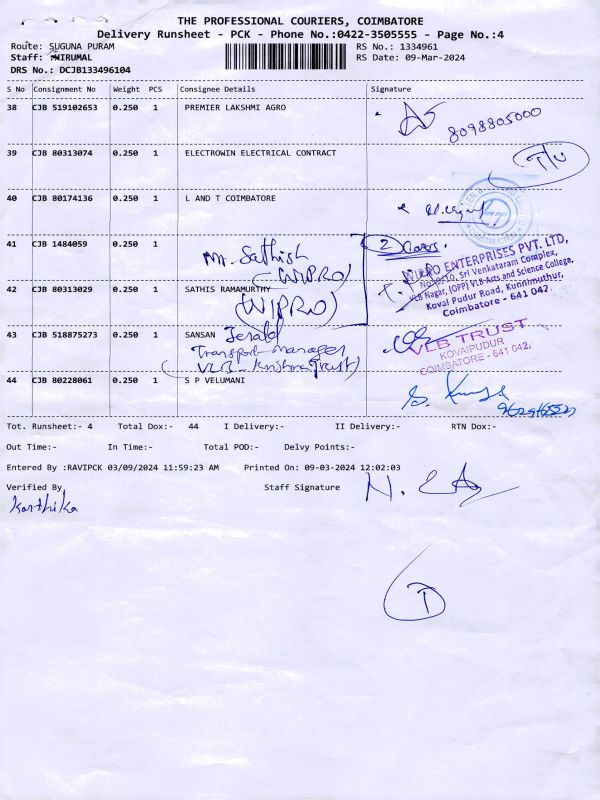 THE PROFESSIONAL COURIERS, COIMBATORE
Delivery Runsheet - PCK - Phone No.:0422-3505555 - Page No.:4
Route: SUGUNA PURAM
RS No.: 1334961
Staff: NIRUMAL
RS Date: 09-Mar-2024
DRS No.: DCJB133496104
S No Consignment No Weight PCS Consignee Details Signature
38 CJB 519102653 0.250 1 PREMIER LAKSHMI AGRO
8098805000
39 CJB 80313074 0.250 1 ELECTROWIN ELECTRICAL CONTRACT
T/U
40 CJB 80174136 0.250 1 L AND T COIMBATORE
41 CJB 1484059 0.250 1 Mr. Sathish
(WIPRO)
2
42 CJB 80313029 0.250 1 SATHIS RAMAMURTHY
(WIPRO)
ENTERPRISES PVT. LTD,
Sri Venkataram Complex,
VLB Nagar, (OPP) VLB Arts and Science College,
Kovai Pudur Road, Kunnimuthur,
Coimbatore - 641 042.
43 CJB 518875273 0.250 1 SANSAN Jerald
Transport-Manager
(VLB-Krishna Trust)
VLB TRUST
KOVAIPUDUR
COIMBATORE - 641 042.
44 CJB 80228061 0.250 1 S P VELUMANI
Tot. Runsheet:- 4 Total Dox:- 44 I Delivery:- II Delivery:- RTN Dox:-
Out Time:- In Time:- Total POD:- Delvy Points:-
Entered By :RAVIPCK 03/09/2024 11:59:23 AM Printed On: 09-03-2024 12:02:03
Verified By Staff Signature
Karthika
T